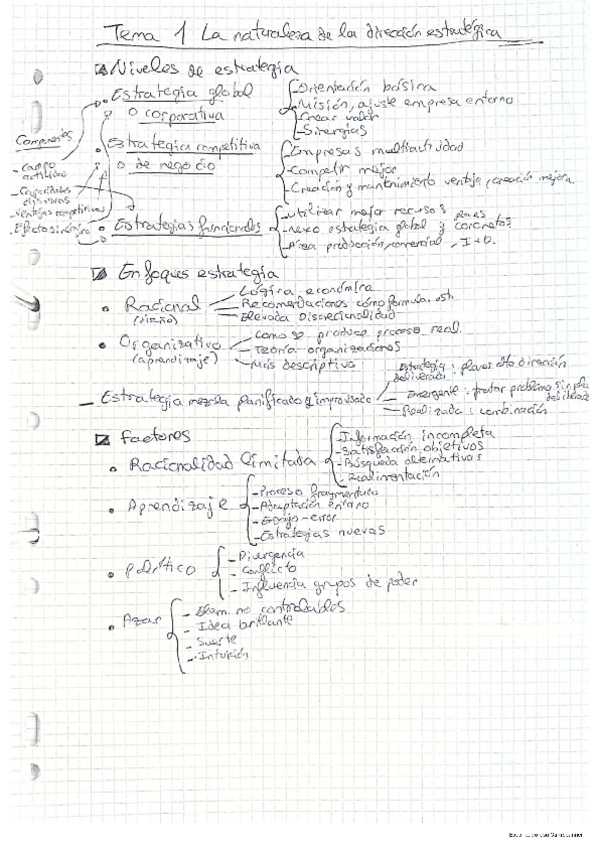 Tema 1 La naturaleza de la dirección estratégica
Niveles de estrategia
Estrategia global
o corporativa
- Orientación básica
- Misión, ajuste empresa entorno
- Crear valor
- Sinergias
Componentes
- Campo actividad
- Capacidades distintivas
- Ventajas competitivas
- Efecto sinérgico
Estrategica competitiva
o de negocio
- Empresas multiactividad
- Competir mejor
- Creación y mantenimiento ventaja, creación mejora
Estrategias funcionales
- Utilizar mejor recursos
- nexo estrategia global y planes concretos
- Área producción, comercial, I+D.
Enfoques estrategia
Racional
(diseño)
Lógica económica
Recomendaciones cómo formular
Elevada Discrecionalidad
Organizativo
(aprendizaje)
Como se produce proceso real.
Teoría organizaciones
Más descriptivo
- Estrategia mezcla planificado y improvisado
Estrategia deliberada: planes alta dirección
Emergente: tratar problema sin plan deliberado
Realizada: combinación
Factores
Racionalidad limitada
- Información incompleta
- Satisfacción objetivos
- Búsqueda alternativas
- Realimentación
Aprendizaje
- Proceso fragmentado
- Adaptación entorno
- -error
- Estrategias nuevas
Político
- Divergencia
- Conflicto
- Influencia grupos de poder
Azar
- Elem. no controlables
- Idea brillante
- Suerte
- Intuición